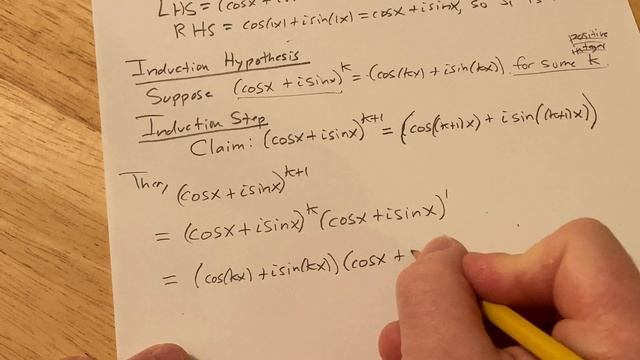 LHS = (cosx +
RHS = cos(1x) + isin(1x) = cosx + isinx, so
Induction Hypothesis
positive
integer
Suppose (cosx + isinx)^k = (cos(kx) + isin(kx)) for some k.
Induction Step
Claim: (cosx + isinx)^k+1 = (cos((k+1)x) + isin((k+1)x))
Then, (cosx + isinx)^k+1
= (cosx + isinx)^k (cosx + isinx)^1
= (cos(kx) + isin(kx)) (cosx +